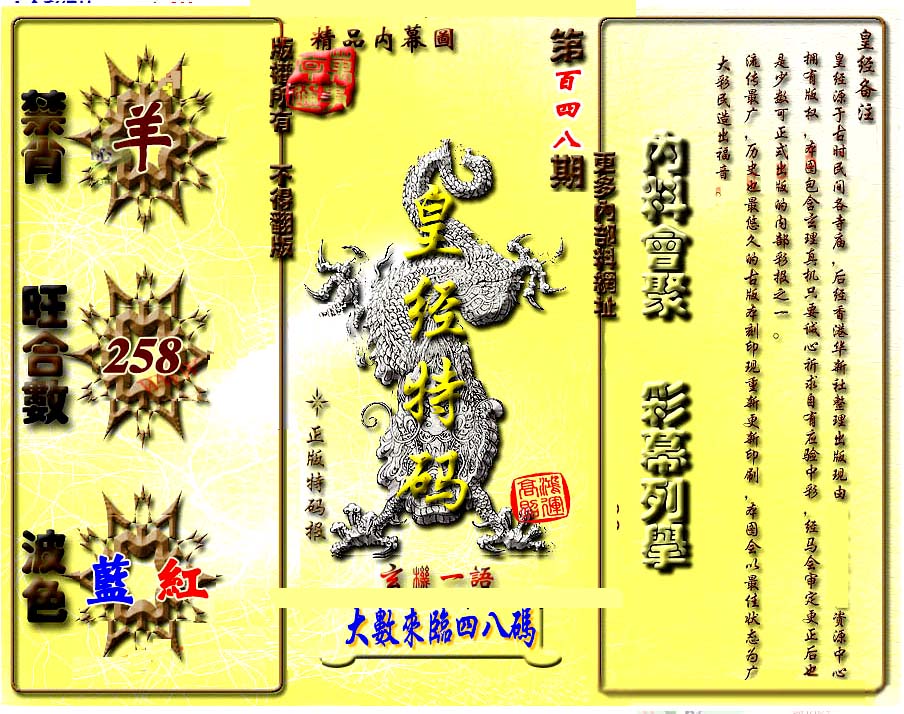 精品内幕圖
版權所有 不得翻版
第百四八期
禁肖
羊
旺合數
258
波色
藍 紅
皇经特码
正版特码报
鸿運高照
玄機一語
大數來臨四八碼
更多內部料網址
內料會聚
彩幕列舉
皇经备注
皇经源于古时民间各寺庙，后经香港华新社整理出版现由 资源中心
拥有版权，本图包含玄理真机只要诚心祈求自有应验中彩，经马会审定更正后也
是少数可正式出版的内部彩报之一。
流传最广，历史也最悠久的古版本刻印现重新更新印刷，本图会以最佳状态为广
大彩民造出福音。